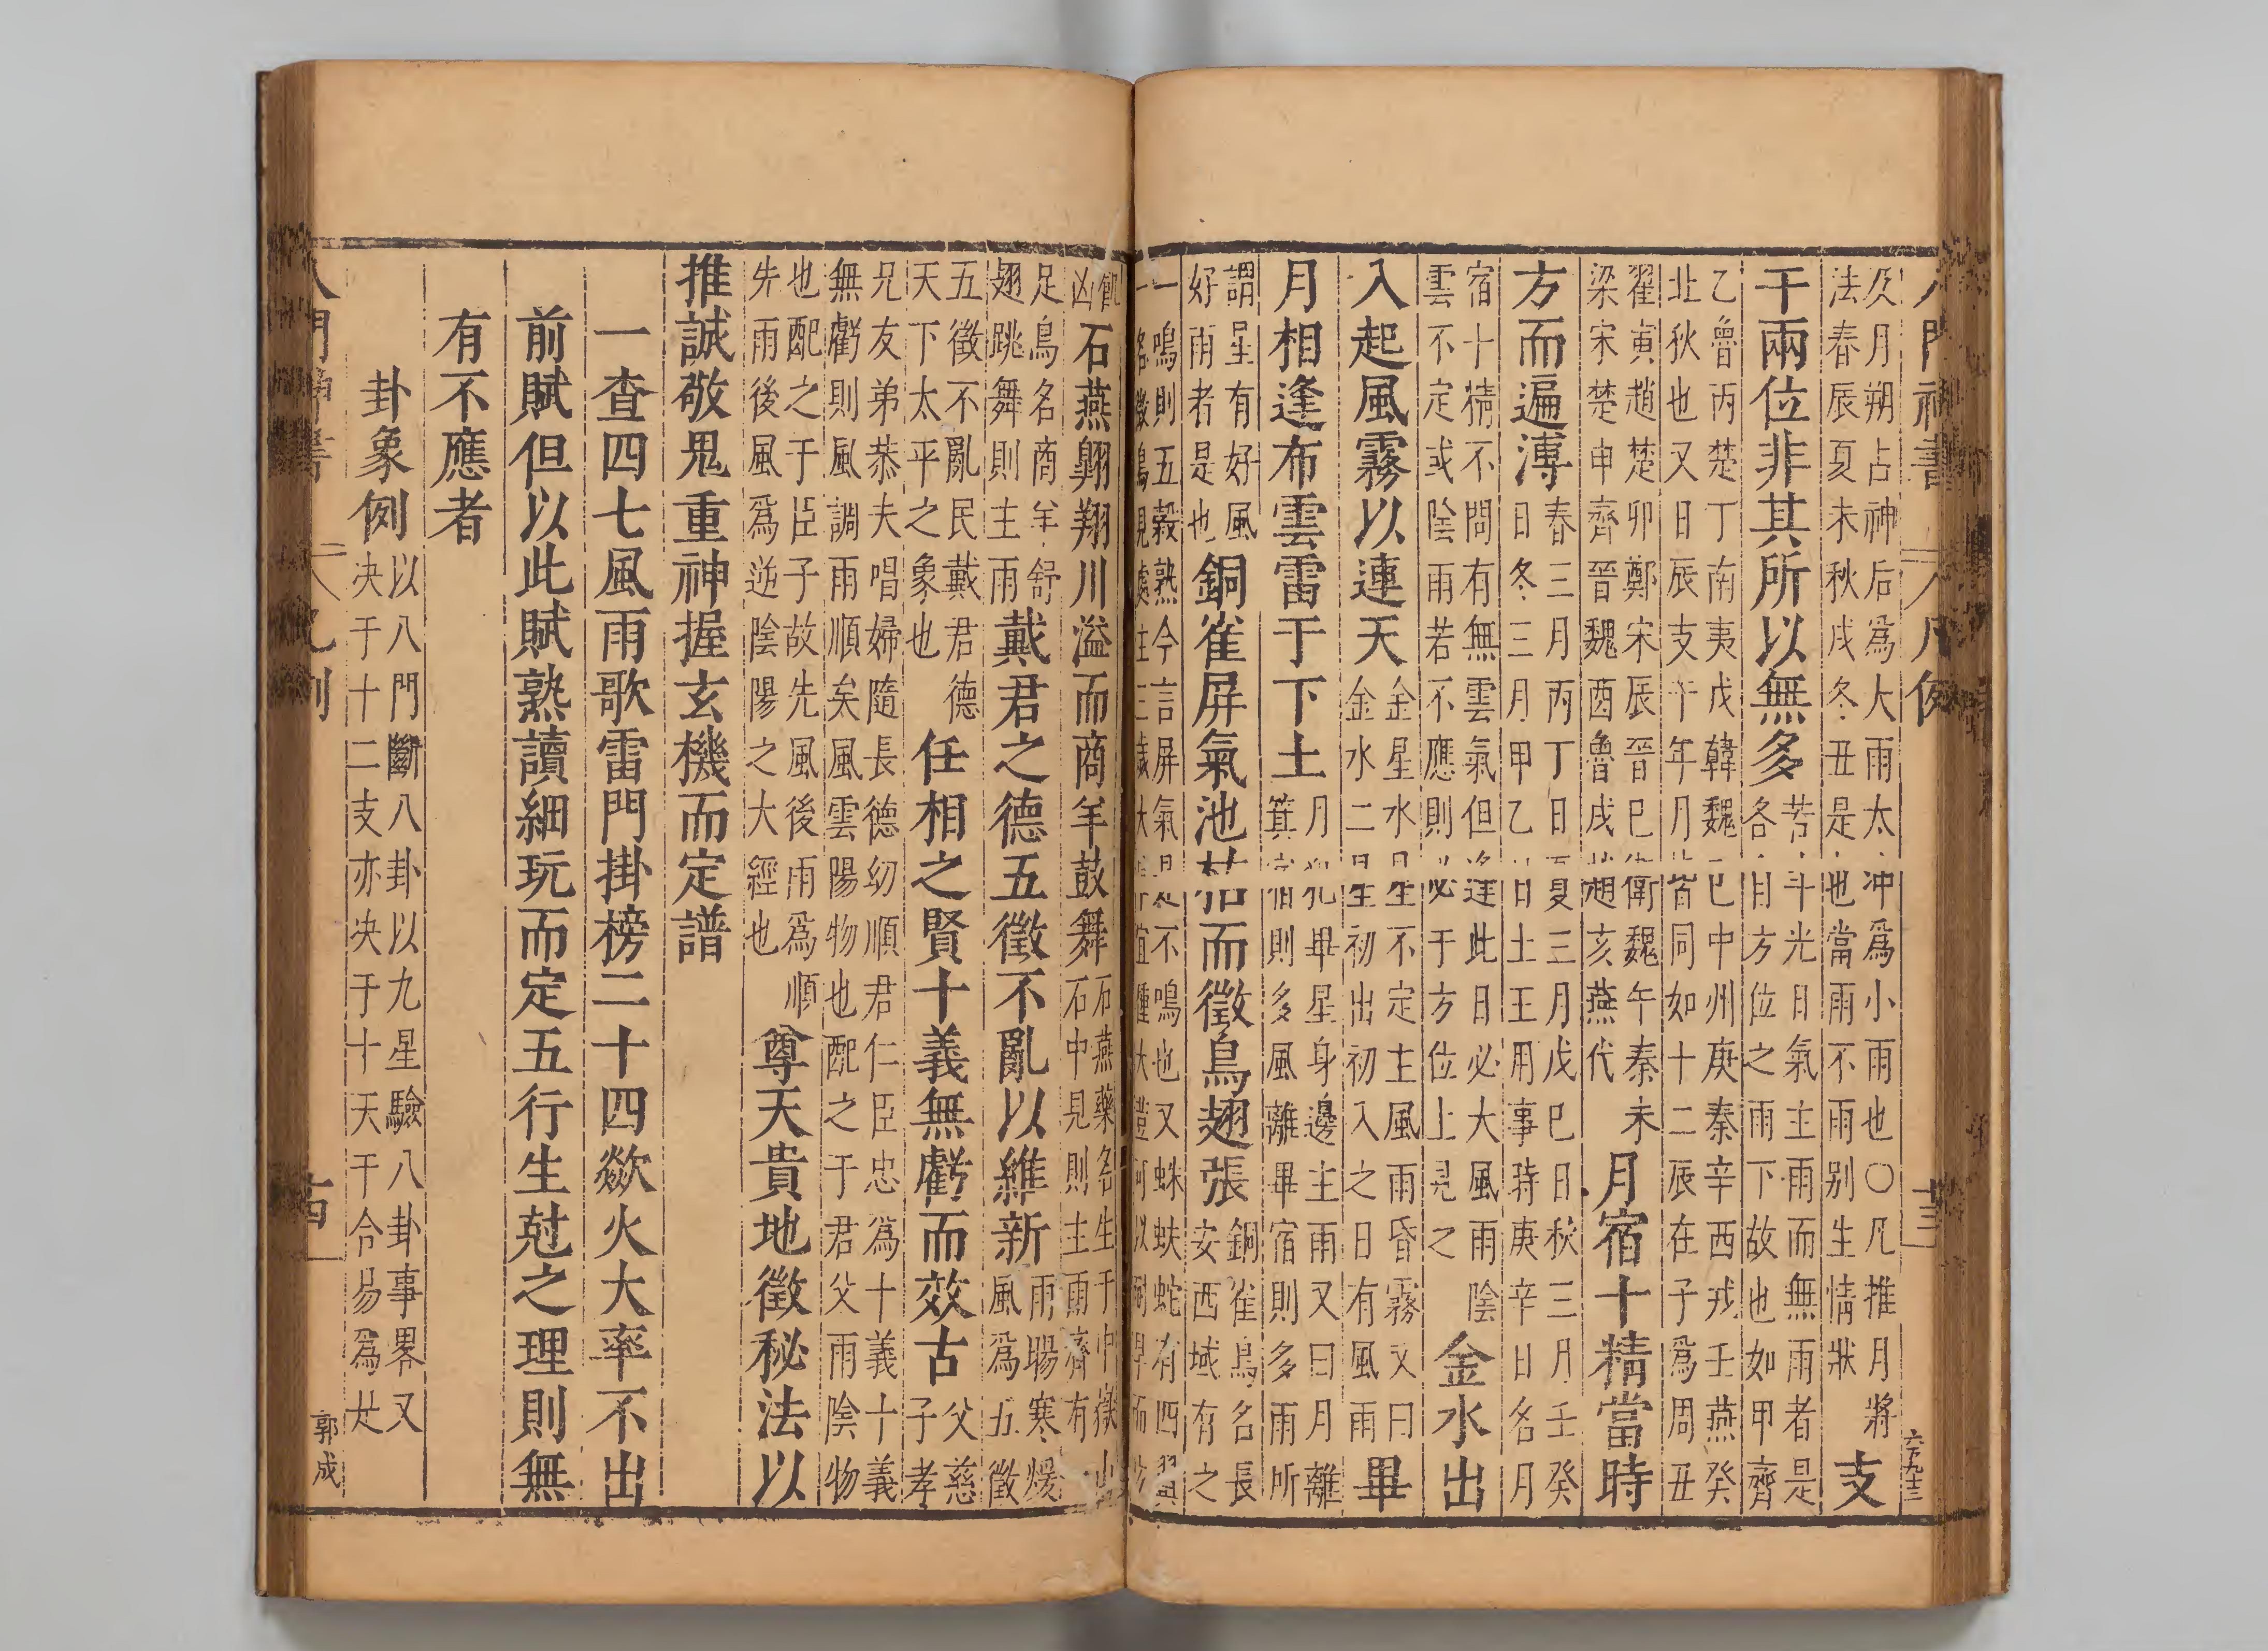 及月朔占神后爲大雨太冲爲小雨也〇凡推月將
法春辰夏未秋戌冬丑是也當雨不雨别生情狀
支
干兩位非其所以無多
若斗光日氣主雨而無雨者是
各日方位之雨下故也如甲齊
乙魯丙楚丁南夷戊韓魏巳中州庚秦辛西戎壬燕癸
北秋也又日辰支干年月皆同如十二辰在子爲周丑
翟寅趙楚卯鄭宋辰晉巳衛魏午秦未
梁宋楚申齊晉魏酉魯戌趙亥燕代
月宿十精當時
方而遍溥
春三月丙丁日夏三月戊巳日秋三月壬癸
日冬三月甲乙日土王用事時庚辛日名月
宿十精不問有無雲氣但逢此日必大風雨陰
雲不定或陰雨若不應則必于方位上見之
金水出
入起風霧以連天
金星水星不定主風雨昏霧又曰
金水二星初出初入之日有風雨
畢
月相逢布雲雷于下土
月犯畢星身邊主雨又曰月離
箕宿則多風離畢宿則多雨所
謂星有好風
好雨者是也
銅雀屏氣池茄而徵鳥翅張
銅雀鳥名長
安西域有之
一鳴則五穀熟今言屏氣是不鳴也又蛛蚨蛇有四翼
石燕翺翔川溢而商羊鼓舞
石燕藥名生于中嶽山
石中見則主雨濟有一
足鳥名商羊舒
翅跳舞則主雨
戴君之德五徵不亂以維新
雨暘寒煖
風爲五徵
五徵不亂民戴君德
天下太平之象也
任相之賢十義無虧而效古
父慈
子孝
兄友弟恭夫唱婦隨長德幼順君仁臣忠爲十義十義
無虧則風調雨順矣風雲陽物也配之于君父雨陰物
也配之于臣子故先風後雨爲順
先雨後風爲逆陰陽之大經也
尊天貴地徵秘法以
推誠敬鬼重神握玄機而定譜
一查四七風雨歌雷門掛榜二十四歘火大率不出
前賦但以此賦熟讀細玩而定五行生尅之理則無
有不應者
卦象例
以八門斷八卦以九星驗八卦事畧又
决于十二支亦决于十天干合易爲是
郭成